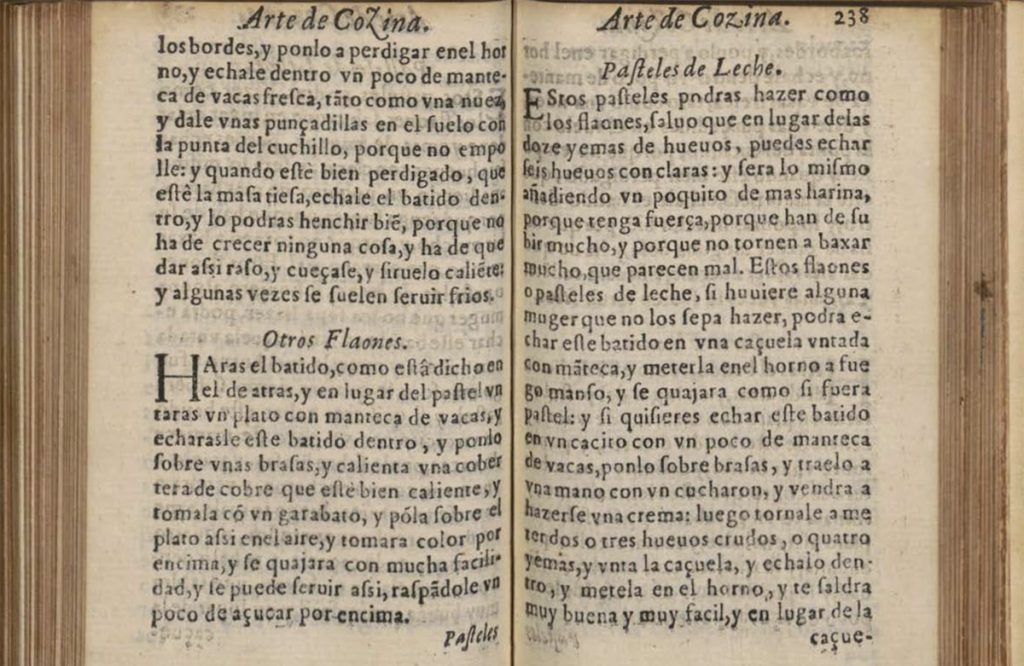 Arte de CoZina.
los bordes,y ponlo a perdigar enel hor
no,y echale dentro vn poco de mante-
ca de vacas fresca, tãto como vna nuez,
y dale vnas punçadillas en el suelo con
la punta del cuchillo, porque no empo
lle: y quando estè bien perdigado, que
estè la masa tiesa,echale el batido den-
tro,y lo podras henchir biẽ, porque no
ha de crecer ninguna cosa,y ha de que
dar assi raso,y cueçase,y siruelo caliẽte:
y algunas vezes se suelen seruir frios.
Otros Flaones.
HAras el batido,como està dicho en
el de atras,y en lugar del pastel vn
taras vn plato con manteca de vacas,y
echarasle este batido dentro, y ponlo
sobre vnas brasas,y calienta vna cober
tera de cobre que estè bien caliente,y
tomala cõ vn garabato, y põla sobre el
plato assi enel aire,y tomara color por
encima,y se quajara con mucha facili-
dad,y se puede seruir assi,raspãdole vn
poco de açucar por encima.
Pasteles
Arte de Cozina. 238
Pasteles de Leche.
EStos pasteles podras hazer como
los flaones,saluo que en lugar delas
doze yemas de hueuos, puedes echar
seis hueuos con claras: y sera lo mismo
añadiendo vn poquito de mas harina,
porque tenga fuerça,porque han de su
bir mucho,y porque no tornen a baxar
mucho,que parecen mal. Estos flaones
o pasteles de leche, si huuiere alguna
muger que no los sepa hazer, podra e-
char este batido en vna caçuela vntada
con mãteca,y meterla enel horno a fue
go manso, y se quajara como si fuera
pastel: y si quisieres echar este batido
en vn cacito con vn poco de manteca
de vacas,ponlo sobre brasas, y traelo a
vna mano con vn cucharon, y vendra a
hazerse vna crema: luego tornale a me
ter dos o tres hueuos crudos, o quatro
yemas,y vnta la caçuela, y echalo den-
tro, y metela en el horno, y te saldra
muy buena y muy facil,y en lugar de la
caçue-